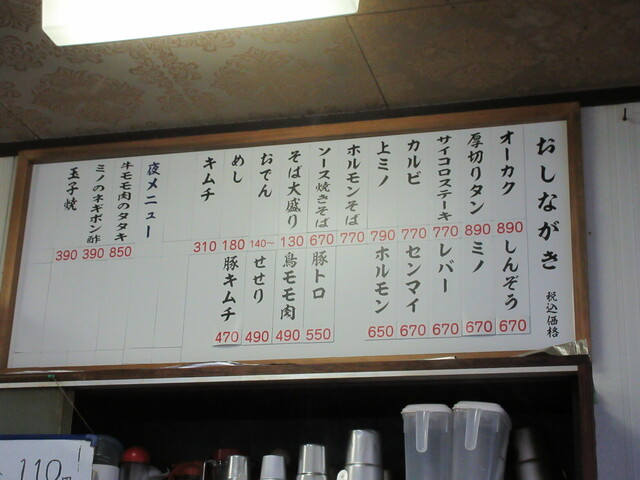 おしながき
税込価格
オーカク 890
厚切りタン 890
サイコロステーキ 770
カルビ 770
上ミノ 790
ホルモンそば 770
ソース焼きそば 670
そば大盛り 130
おでん 140〜
めし 180
キムチ 310
しんぞう 670
ミノ 670
レバー 670
センマイ 670
ホルモン 650
豚トロ 550
鳥モモ肉 490
せせり 490
豚キムチ 470
夜メニュー
牛モモ肉のタタキ 850
ミノのネギポン酢 390
玉子焼 390
110円